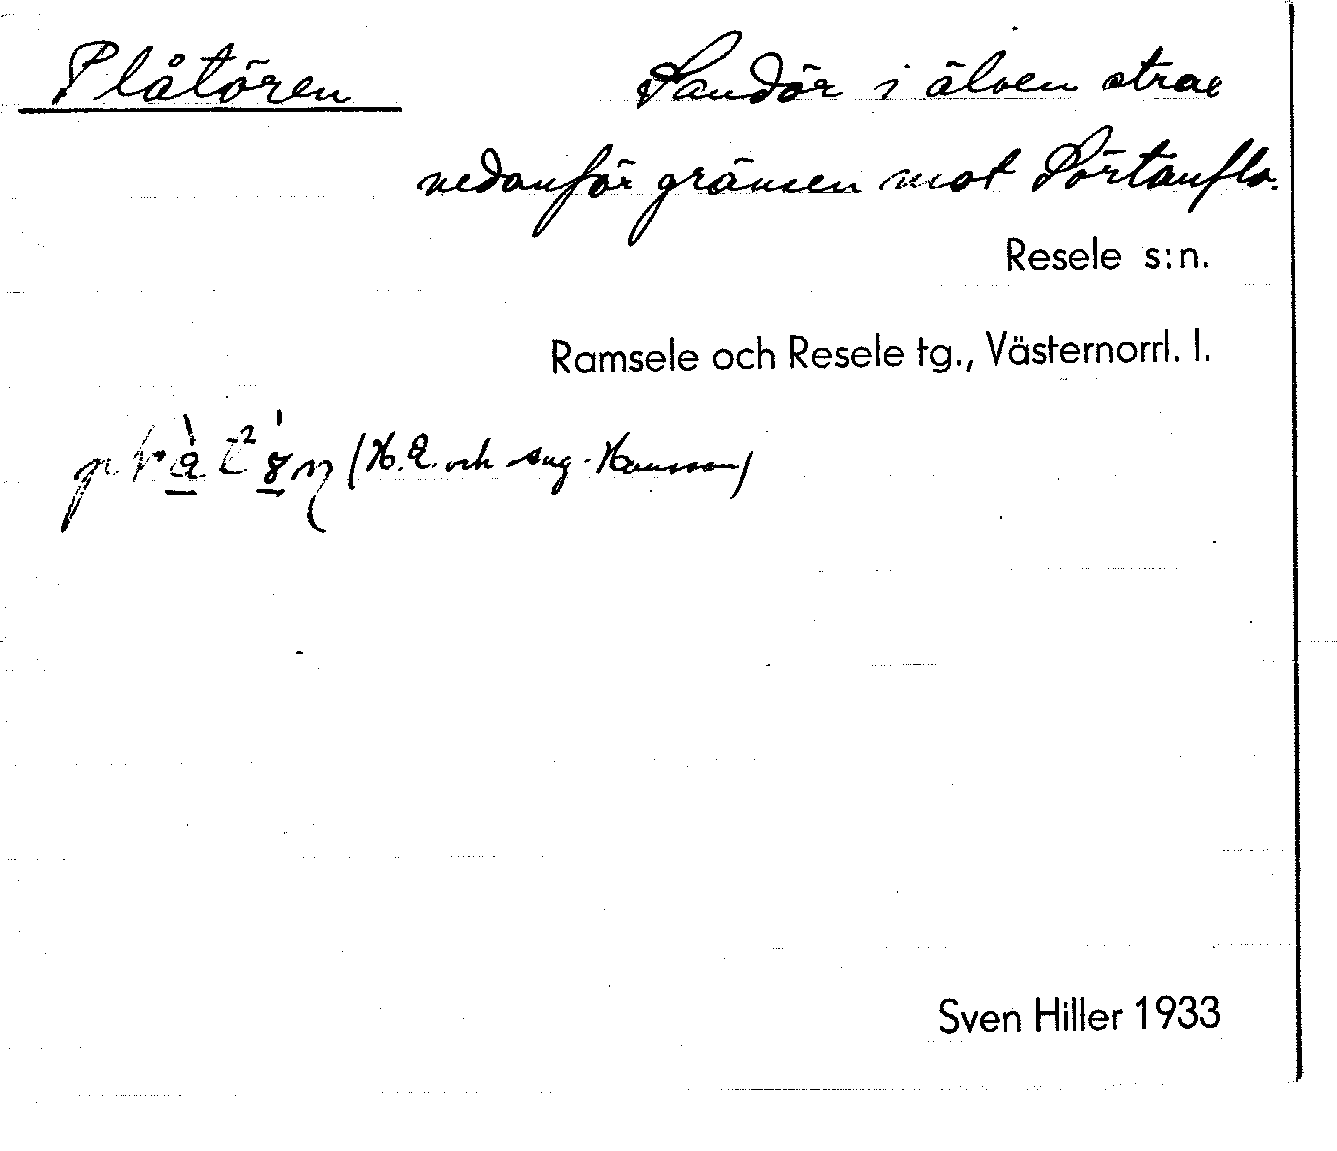 Plåtören Sandör i älven strax
nedanför gränsen mot Sörtanflo.
Resele s:n.
Ramsele och Resele tg., Västernorrl. l.
(H. E. och Aug. Hansson)
Sven Hiller 1933